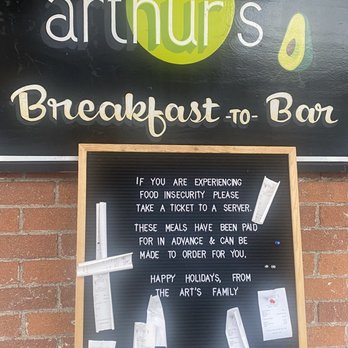 arthur's
Breakfast -TO- Bar
IF YOU ARE EXPERIENCING
FOOD INSECURITY PLEASE
TAKE A TICKET TO A SERVER.
THESE MEALS HAVE BEEN PAID
FOR IN ADVANCE & CAN BE
MADE TO ORDER FOR YOU.
HAPPY HOLIDAYS, FROM
THE ART'S FAMILY